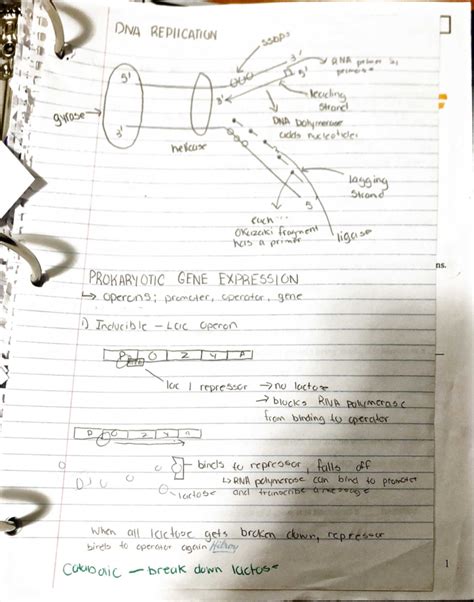 DNA REPLICATION
SSBPs
3'
RNA primer by
primase
5'
5'
3'
leading
strand
gyrase
DNA polymerase
adds nucleotides
3'
helicase
lagging
strand
5'
each...
Okazaki fragment
has a primer
ligase
ns.
PROKARYOTIC GENE EXPRESSION
↳ operons; promoter, operator, gene
1) Inducible - Lac operon
P O Z Y A
lac I repressor → no lactose
→ blocks RNA polymerase
from binding to operator
P O Z Y A
binds to repressor, falls off
↳ RNA polymerase can bind to promoter
and transcribe a message
lactose
When all lactose gets broken down, repressor
binds to operator again
Catabolic - break down lactose
1